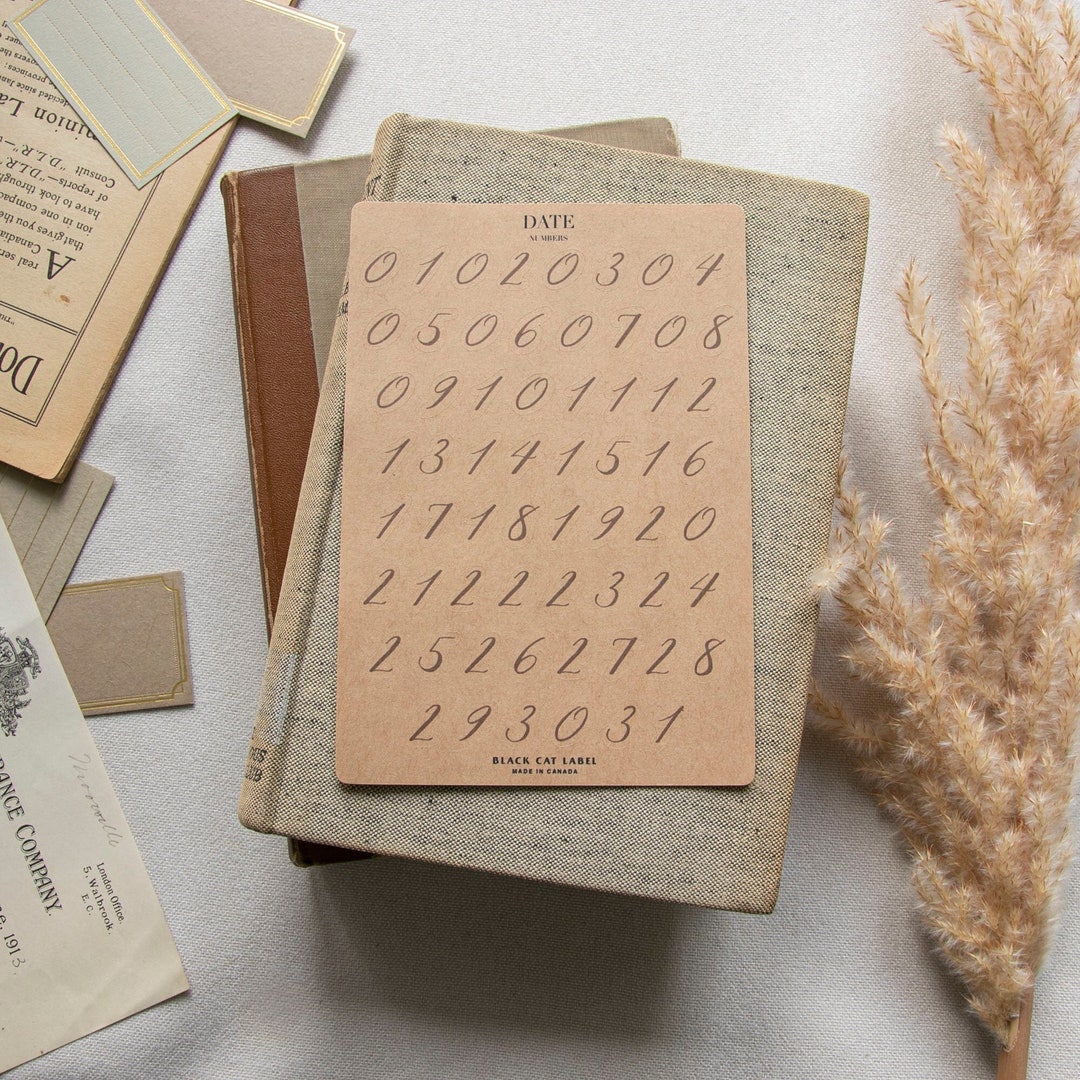 DATE
NUMBERS
0 1 0 2 0 3 0 4
0 5 0 6 0 7 0 8
0 9 1 0 1 1 1 2
1 3 1 4 1 5 1 6
1 7 1 8 1 9 2 0
2 1 2 2 2 3 2 4
2 5 2 6 2 7 2 8
2 9 3 0 3 1
BLACK CAT LABEL
MADE IN CANADA
real serv
A
Canadia
that gives you the
ion in one compac
have to look through
of reports—"D.L.R."—
Consult "D.L.R"
minion La
decided since Jan
provinces;
Do
RANCE COMPANY.
London Office,
5, Walbrook,
E. C.
1913